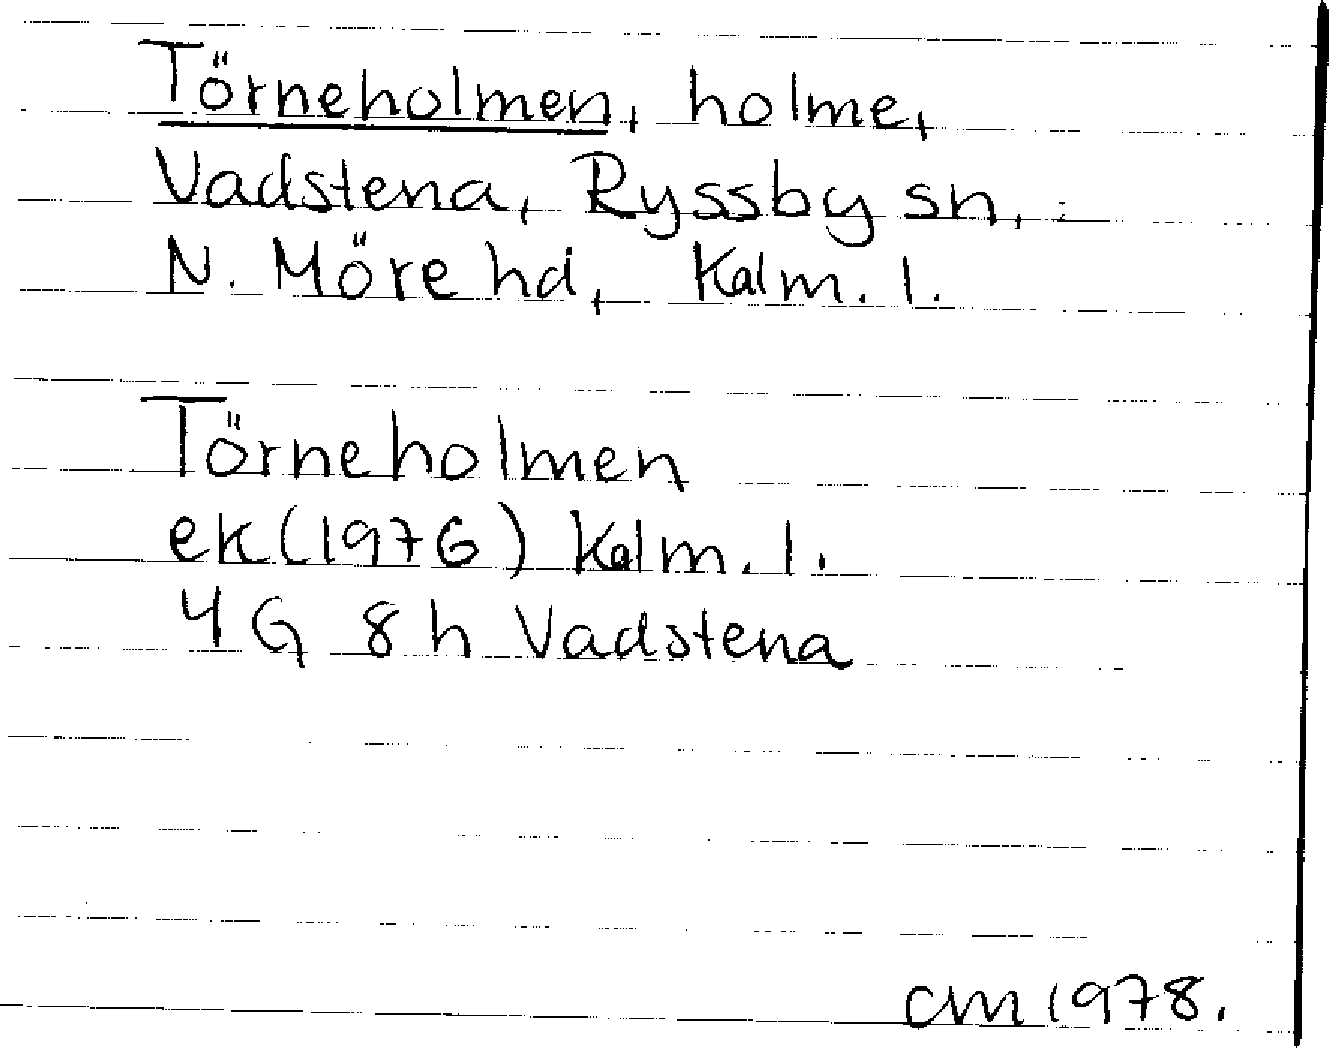 Törneholmen, holme,
Vadstena, Ryssby sn,
N. Möre hd, Kalm. l.
Törneholmen
ek (1976) Kalm. l.
4G 8h Vadstena
CM 1978.